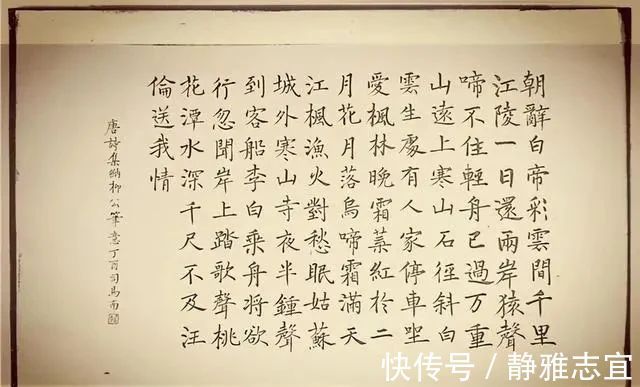 朝辭白帝彩雲間千里
江陵一日還兩岸猿聲
啼不住輕舟已過万重
山遠上寒山石徑斜白
雲生處有人家停車坐
愛楓林晚霜葉紅於二
月花月落烏啼霜滿天
江楓漁火對愁眠姑蘇
城外寒山寺夜半鍾聲
到客船李白乘舟將欲
行忽聞岸上踏歌聲桃
花潭水深千尺不及汪
倫送我情
唐詩集柳公筆意丁酉司馬
快传号 / 静雅志宜